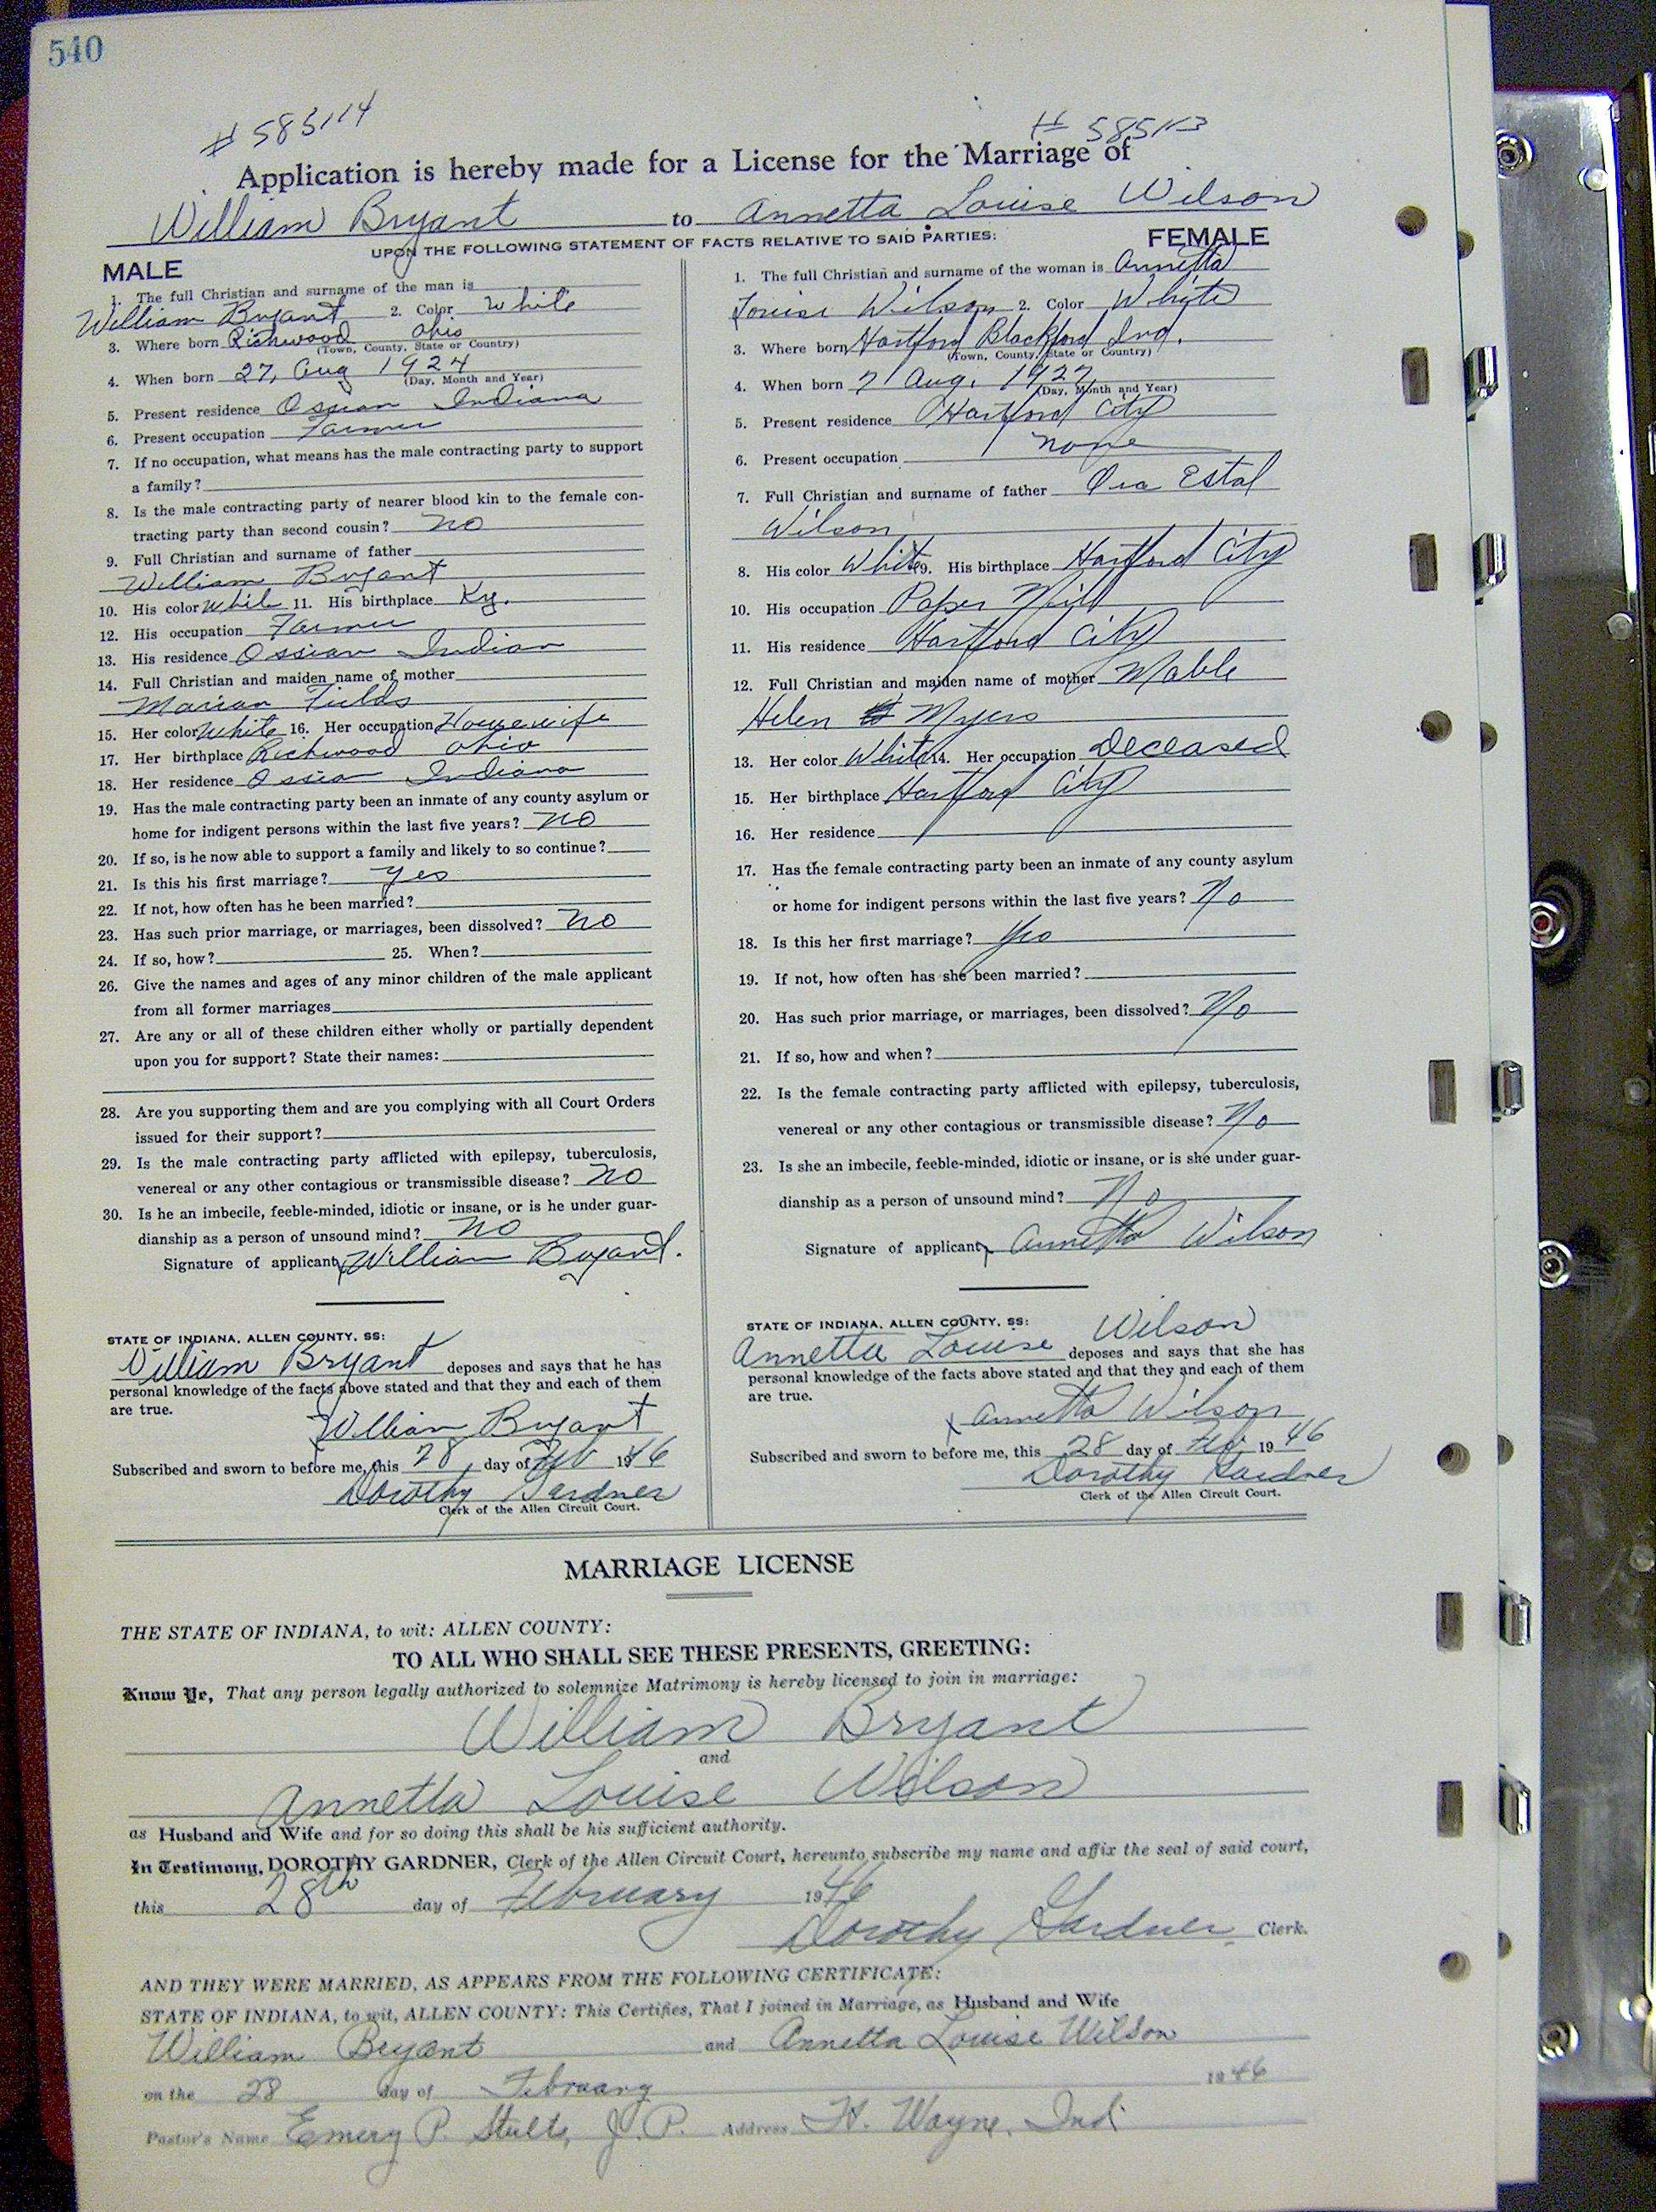 540
# 585114
# 585113
Application is hereby made for a License for the Marriage of
William Bryant to Annetta Louise Wilson
UPON THE FOLLOWING STATEMENT OF FACTS RELATIVE TO SAID PARTIES:
MALE
1. The full Christian and surname of the man is
William Bryant 2. Color White
3. Where born Richwood Ohio
(Town, County, State or Country)
4. When born 27, Aug 1924
(Day, Month and Year)
5. Present residence Ossian Indiana
6. Present occupation Farmer
7. If no occupation, what means has the male contracting party to support
a family?
8. Is the male contracting party of nearer blood kin to the female con-
tracting party than second cousin? no
9. Full Christian and surname of father
William Bryant
10. His color White 11. His birthplace Ky.
12. His occupation Farmer
13. His residence Ossian Indian
14. Full Christian and maiden name of mother
Marian Fields
15. Her color White 16. Her occupation Housewife
17. Her birthplace Richwood Ohio
18. Her residence Ossian Indiana
19. Has the male contracting party been an inmate of any county asylum or
home for indigent persons within the last five years? no
20. If so, is he now able to support a family and likely to so continue?
21. Is this his first marriage? yes
22. If not, how often has he been married?
23. Has such prior marriage, or marriages, been dissolved? no
24. If so, how? 25. When?
26. Give the names and ages of any minor children of the male applicant
from all former marriages
27. Are any or all of these children either wholly or partially dependent
upon you for support? State their names:
28. Are you supporting them and are you complying with all Court Orders
issued for their support?
29. Is the male contracting party afflicted with epilepsy, tuberculosis,
venereal or any other contagious or transmissible disease? no
30. Is he an imbecile, feeble-minded, idiotic or insane, or is he under guar-
dianship as a person of unsound mind? no
Signature of applicant x William Bryant.
STATE OF INDIANA, ALLEN COUNTY, SS:
William Bryant deposes and says that he has
personal knowledge of the facts above stated and that they and each of them
are true.
x William Bryant
Subscribed and sworn to before me, this 28 day of Feb 1946
Dorothy Gardner
Clerk of the Allen Circuit Court.
FEMALE
1. The full Christian and surname of the woman is Annetta
Louise Wilson 2. Color White
3. Where born Hartford Blackford Ind.
(Town, County, State or Country)
4. When born 7 Aug. 1927
(Day, Month and Year)
5. Present residence Hartford City
6. Present occupation none
7. Full Christian and surname of father Ora Estal
Wilson
8. His color White 9. His birthplace Hartford City
10. His occupation Paper Mill
11. His residence Hartford City
12. Full Christian and maiden name of mother Mable
Helen Myers
13. Her color White 14. Her occupation Deceased
15. Her birthplace Hartford City
16. Her residence
17. Has the female contracting party been an inmate of any county asylum
or home for indigent persons within the last five years? No
18. Is this her first marriage? Yes
19. If not, how often has she been married?
20. Has such prior marriage, or marriages, been dissolved? No
21. If so, how and when?
22. Is the female contracting party afflicted with epilepsy, tuberculosis,
venereal or any other contagious or transmissible disease? No
23. Is she an imbecile, feeble-minded, idiotic or insane, or is she under guar-
dianship as a person of unsound mind? No
Signature of applicant x Annetta Wilson
STATE OF INDIANA, ALLEN COUNTY, SS:
Annetta Louise Wilson deposes and says that she has
personal knowledge of the facts above stated and that they and each of them
are true.
x Annetta Wilson
Subscribed and sworn to before me, this 28 day of Feb. 1946
Dorothy Gardner
Clerk of the Allen Circuit Court.
MARRIAGE LICENSE
THE STATE OF INDIANA, to wit: ALLEN COUNTY:
TO ALL WHO SHALL SEE THESE PRESENTS, GREETING:
Know Ye, That any person legally authorized to solemnize Matrimony is hereby licensed to join in marriage:
William Bryant
and
Annetta Louise Wilson
as Husband and Wife and for so doing this shall be his sufficient authority.
In Testimony, DOROTHY GARDNER, Clerk of the Allen Circuit Court, hereunto subscribe my name and affix the seal of said court,
this 28th day of February 1946
Dorothy Gardner Clerk.
AND THEY WERE MARRIED, AS APPEARS FROM THE FOLLOWING CERTIFICATE:
STATE OF INDIANA, to wit, ALLEN COUNTY: This Certifies, That I joined in Marriage, as Husband and Wife
William Bryant and Annetta Louise Wilson
on the 28 day of February 1946
Pastor's Name Emery P. Stults, J.P. Address Ft. Wayne, Ind.